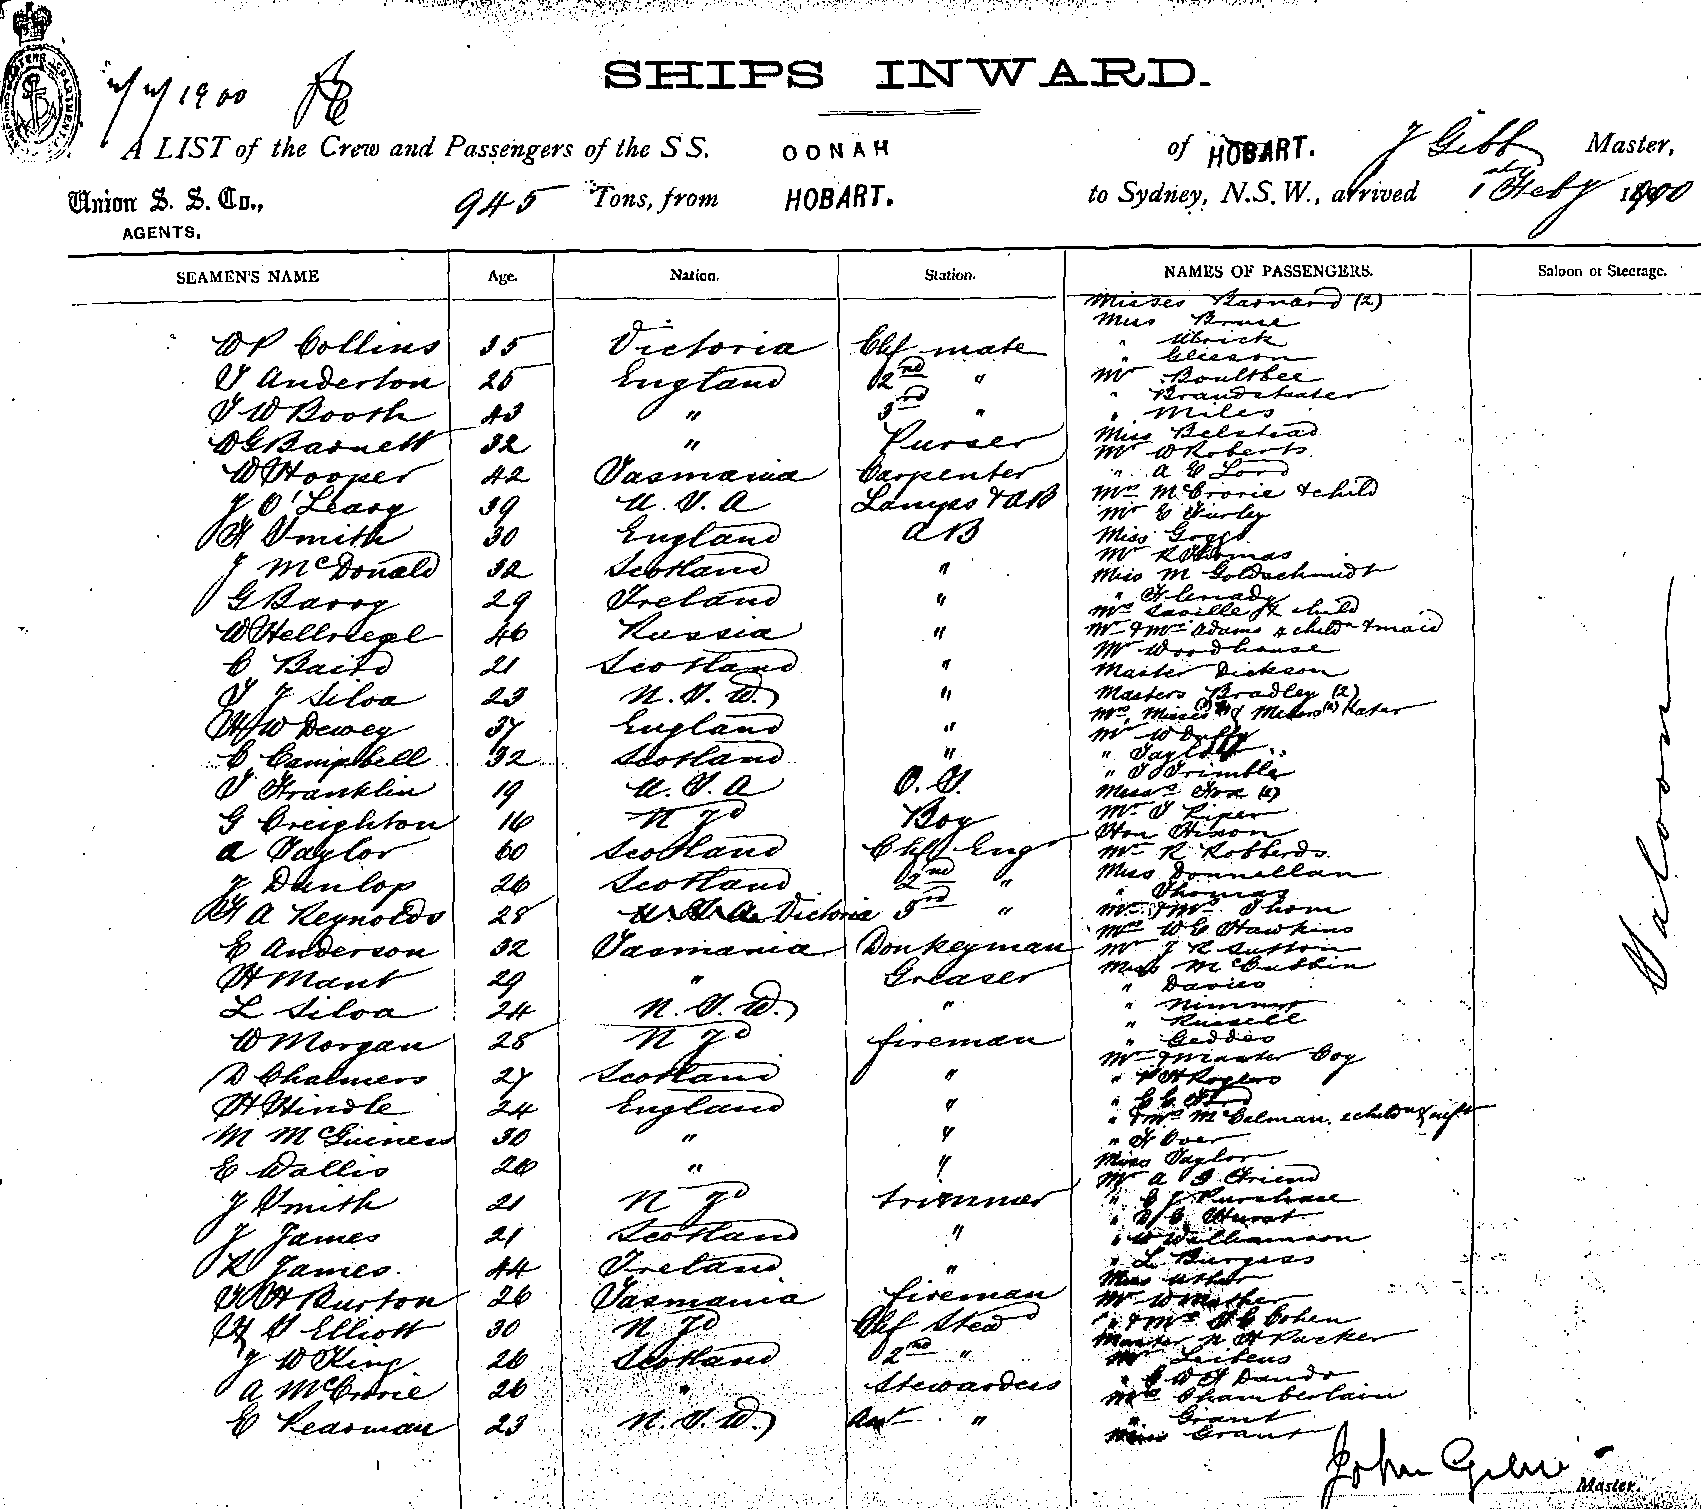 SHIPS INWARD.
1900
A LIST of the Crew and Passengers of the SS. OONAH of HOBART. J Gibb Master,
Union S. S. Co., 945 Tons, from HOBART. to Sydney, N.S.W., arrived 1st Feby 1900
AGENTS.
SEAMEN'S NAME Age. Nation. Station. NAMES OF PASSENGERS. Saloon or Steerage.
W P Collins 35 Victoria Chf mate
T Anderton 25 England 2nd "
T W Booth 43 " 3rd "
W G Barnett 32 " Purser
W Hooper 42 Tasmania Carpenter
J O'Leary 39 U.S.A Lamps & AB
H Smith 30 England AB
J McDonald 32 Scotland "
G Barry 29 Ireland "
W Hellriegel 46 Russia "
C Baird 21 Scotland "
T J Silva 23 N.S.W. "
H W Dewey 37 England "
C Campbell 32 Scotland "
T Franklin 19 U.S.A O.S.
G Creighton 16 N Zd Boy
A Taylor 60 Scotland Chf Engr
J Dunlop 26 Scotland 2nd "
H A Reynolds 28 Victoria 3rd "
E Anderson 32 Tasmania Donkeyman
H Mant 29 " Greaser
L Silva 24 N.S.W. "
W Morgan 28 N Zd fireman
D Chalmers 27 Scotland "
H Hindle 24 England "
M McGuiness 30 " "
E Wallis 26 " "
J Smith 21 N Zd trimmer
J James 21 Scotland "
L James 44 Ireland "
T H Burton 26 Tasmania fireman
H S Elliott 30 N Zd Chf Stewd
J W King 26 Scotland 2nd "
A McCrorie 26 " Stewardess
C Kearman 23 N.S.W. Asst "
Misses Barnard (2)
Miss Bruse
" Ulrick
" Gleeson
Mr Boultbee
" Brandstater
" Miles
Miss Belstead
Mr W Roberts
" A E Lord
Mrs McCrorie & child
Mr C Turley
Miss Goggs
Mr R Thomas
Miss M Goldschmidt
" H Lenady
Mrs Saville & child
Mr & Mrs Adams & childn & maid
Mr Woodhouse
Master Dickson
Masters Bradley (2)
Mrs, Misses & Masters Kater
Mr W Duffy
" Taylor
" T Trimble
Messrs Fox (2)
Mr T Piper
Hon Hixon
Mr R Robberds
Miss Donnellan
" Thomas
Mr & Mrs Thom
Mrs W E Hawkins
Mr J R Sutton
Miss McCubbin
" Davies
" Nimmo
" Russell
" Geddes
Mr & Master Coy
" P H Rogers
" C C Ford
" & Mrs McCelman, & childn &
" H Over
Miss Taylor
Mr A G Friend
" E J Purchase
" Hurst
" W Williamson
" L Burgess
Miss
Mr W Mather
" & Mrs H C Cohen
Master N H Packer
Mr
" Dando
Mrs Chamberlain
" Grant
Miss Grant
Saloon
Master.